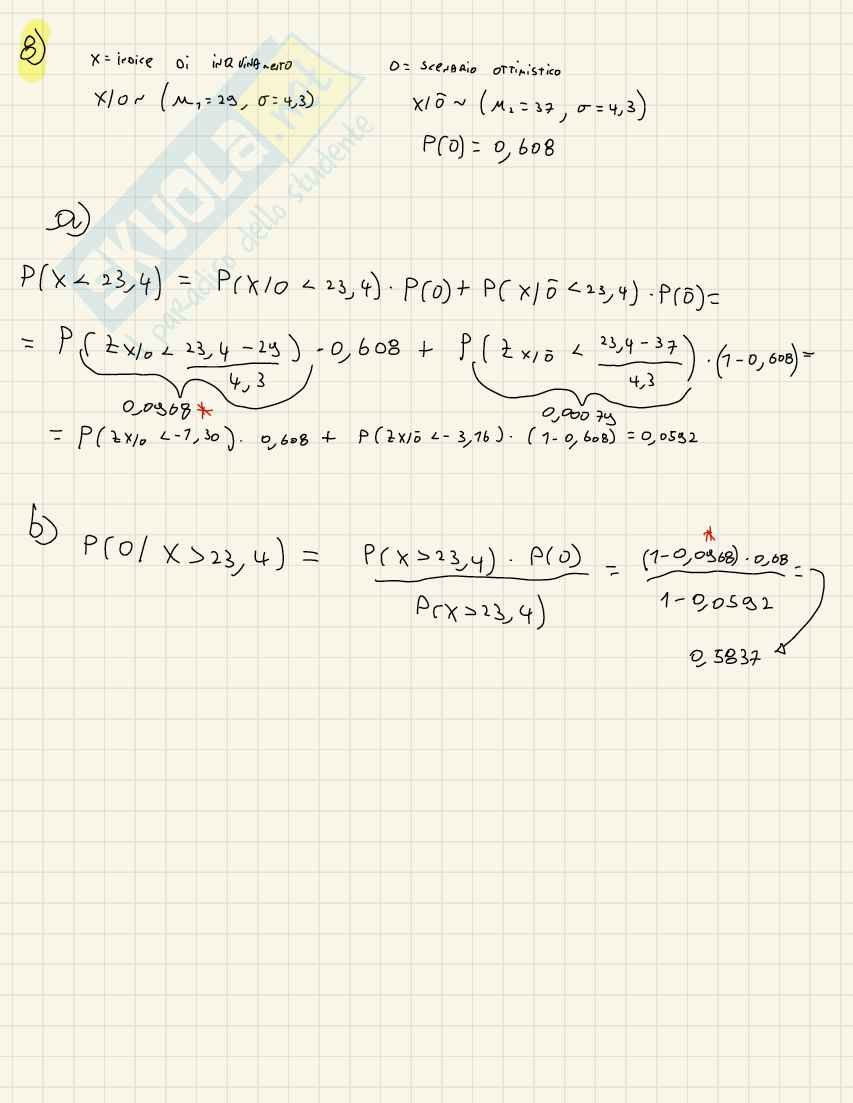 8)
X = indice di inquinamento
O = scenario ottimistico
X/O ~ (μ₁ = 29, σ = 4,3)
X/Ō ~ (μ₂ = 37, σ = 4,3)
P(O) = 0,608
SKUOLA.net
il paradiso dello studente
a)
P(X < 23,4) = P(X/O < 23,4) · P(O) + P(X/Ō < 23,4) · P(Ō) =
= P(Z X/O < (23,4 - 29)/4,3) · 0,608 + P(Z X/Ō < (23,4 - 37)/4,3) · (1 - 0,608) =
0,0968 * 0,00079
= P(Z X/O < -1,30) · 0,608 + P(Z X/Ō < -3,16) · (1 - 0,608) = 0,0592
b)
P(O/X > 23,4) = P(X > 23,4) · P(O) / P(X > 23,4) = (1 - 0,0968)* · 0,608 / 1 - 0,0592 =
0,5837